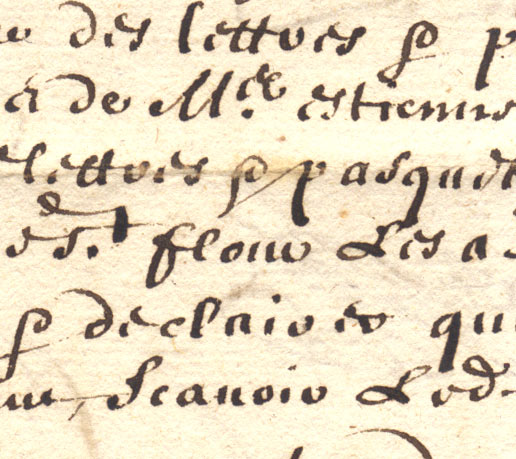 des lettres p
de Me estienne
lettres p pasquet
dest flour Les a
p declaires qu
Scauoir Led